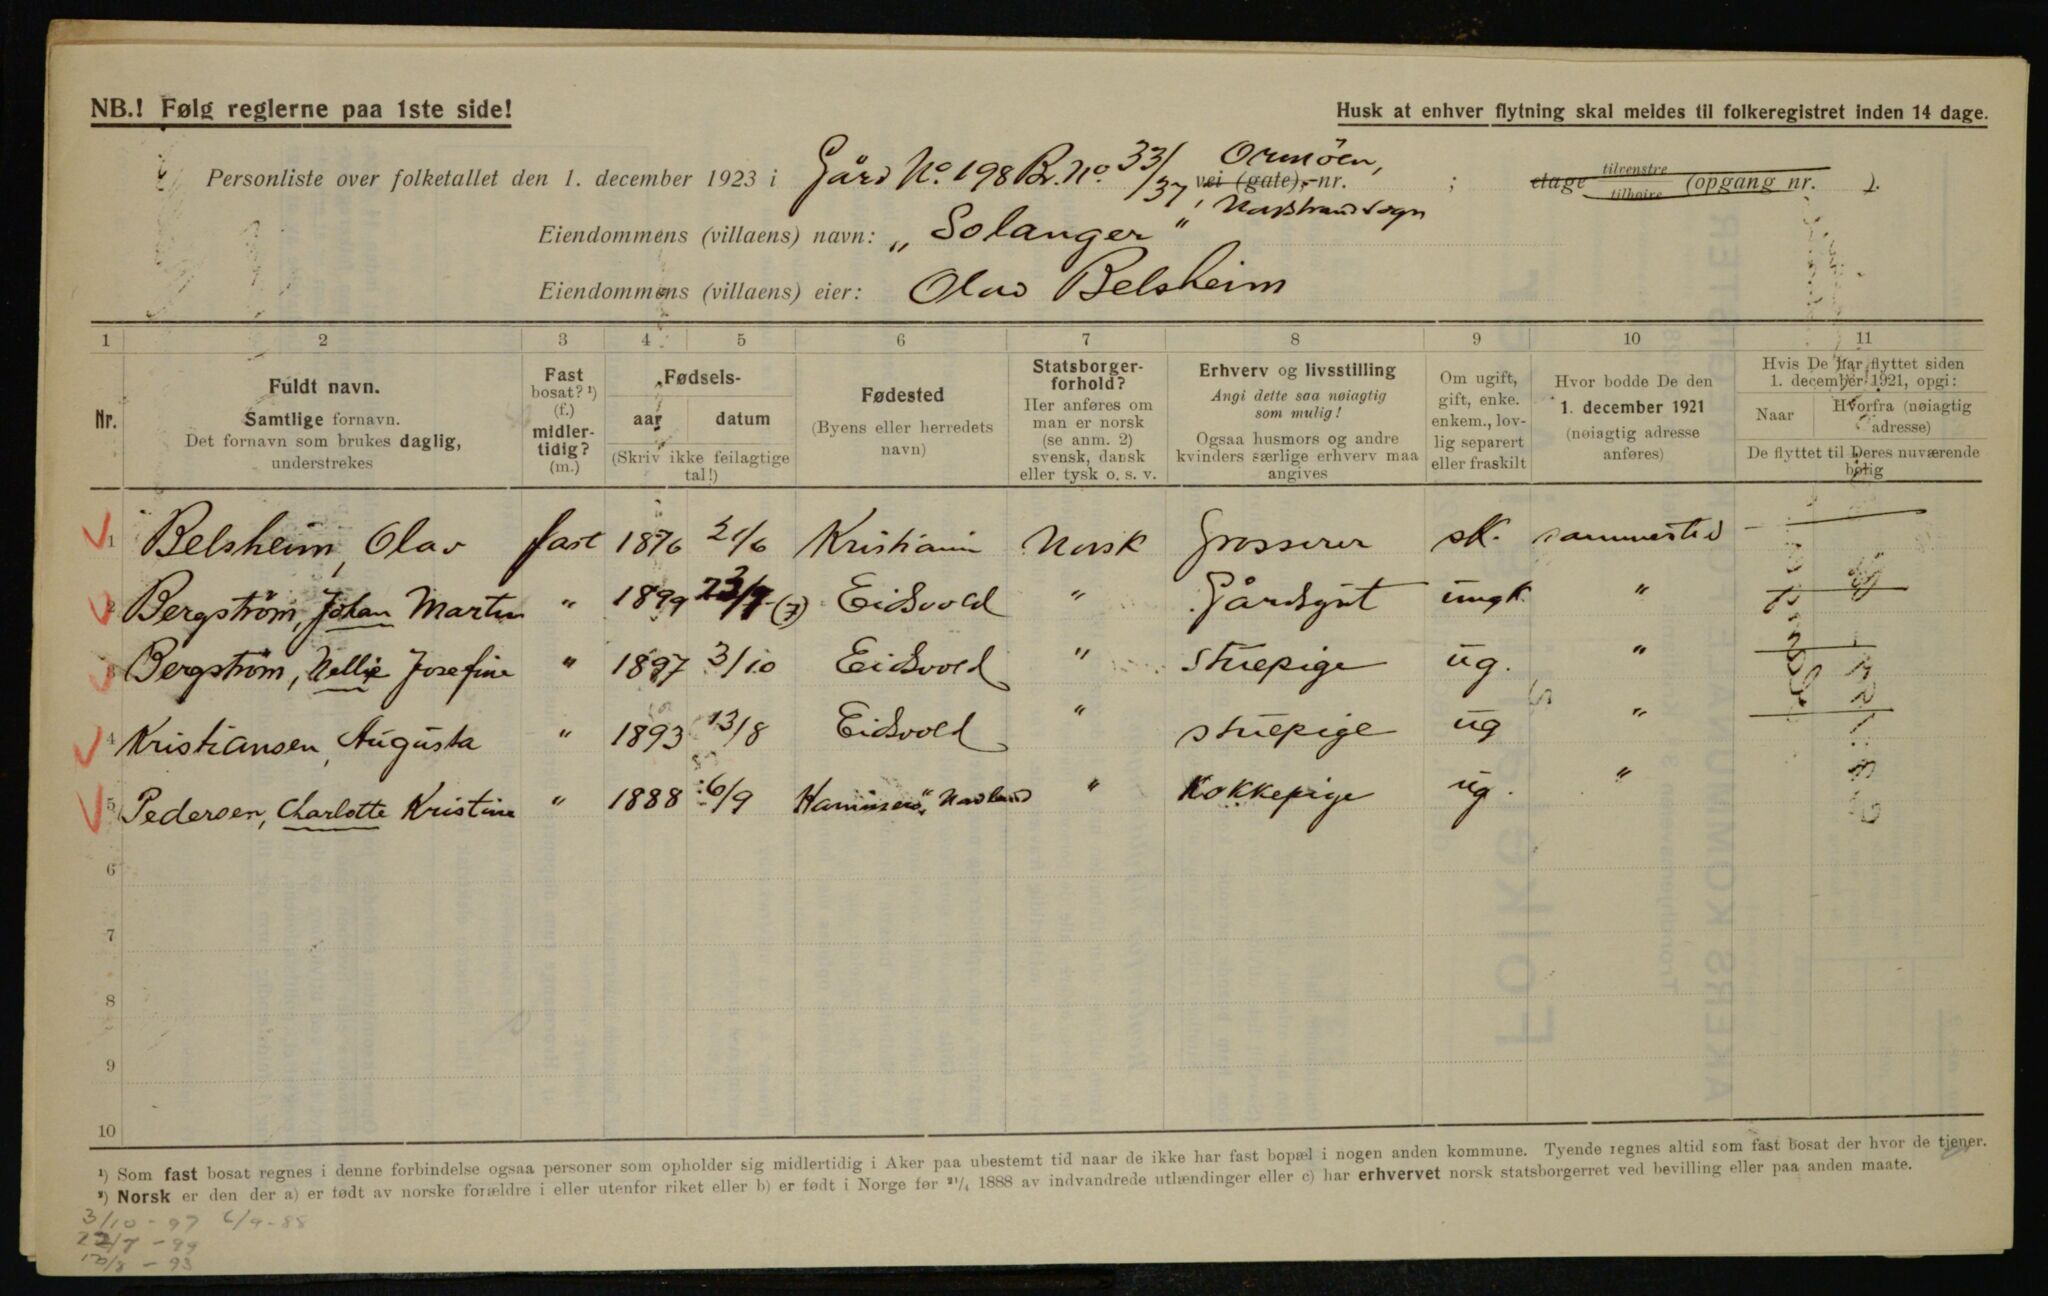 NB.! Følg reglerne paa 1ste side!
Husk at enhver flytning skal meldes til folkeregistret inden 14 dage.
Personliste over folketallet den 1. december 1923 i Gård No. 198 Br. no. 33/37, vei (gate), nr. Ormöen, ; etage tilvenstre tilhøire (opgang nr. ).
Nordstrand sogn
Eiendommens (villaens) navn: „Solanger"
Eiendommens (villaens) eier: Olav Belsheim
1 2 3 4 5 6 7 8 9 10 11
Nr.
Fuldt navn.
Samtlige fornavn.
Det fornavn som brukes daglig,
understrekes
Fast
bosat? ¹)
(f.)
midler-
tidig?
(m.)
Fødsels-
aar datum
(Skriv ikke feilagtige
tal!)
Fødested
(Byens eller herredets
navn)
Statsborger-
forhold?
Her anføres om
man er norsk
(se anm. 2)
svensk, dansk
eller tysk o. s. v.
Erhverv og livsstilling
Angi dette saa nøiagtig
som mulig!
Ogsaa husmors og andre
kvinders særlige erhverv maa
angives
Om ugift,
gift, enke.
enkem., lov-
lig separert
eller fraskilt
Hvor bodde De den
1. december 1921
(nøiagtig adresse
anføres)
Hvis De har flyttet siden
1. december 1921, opgi:
Naar Hvorfra (nøiagtig
adresse)
De flyttet til Deres nuværende
bolig
1 Belsheim, Olav fast 1876 21/6 Kristiania Norsk Grosserer sk. sammested —
2 Bergström, Johan Martin " 1899 (7) Eidsvold " Gårdsgut ungk. "
3 Bergström, Nellie Josefine " 1897 3/10 Eidsvold " stuepige ug. "
4 Kristiansen, Augusta " 1893 13/8 Eidsvold " stuepige ug "
5 Pedersen, Charlotte Kristine " 1888 6/9 " Kokkepige ug. "
6
7
8
9
10
¹) Som fast bosat regnes i denne forbindelse ogsaa personer som opholder sig midlertidig i Aker paa ubestemt tid naar de ikke har fast bopæl i nogen anden kommune. Tyende regnes altid som fast bosat der hvor de tjener.
²) Norsk er den der a) er født av norske forældre i eller utenfor riket eller b) er født i Norge før ²¹/₄ 1888 av indvandrede utlændinger eller c) har erhvervet norsk statsborgerret ved bevilling eller paa anden maate.
3/10 - 97 6/9 - 88
22/7 - 99
13/8 - 93